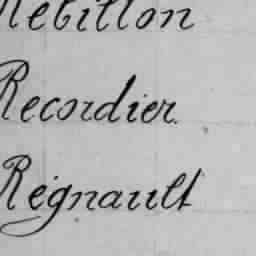 Rebillon
Recordier
Regnault